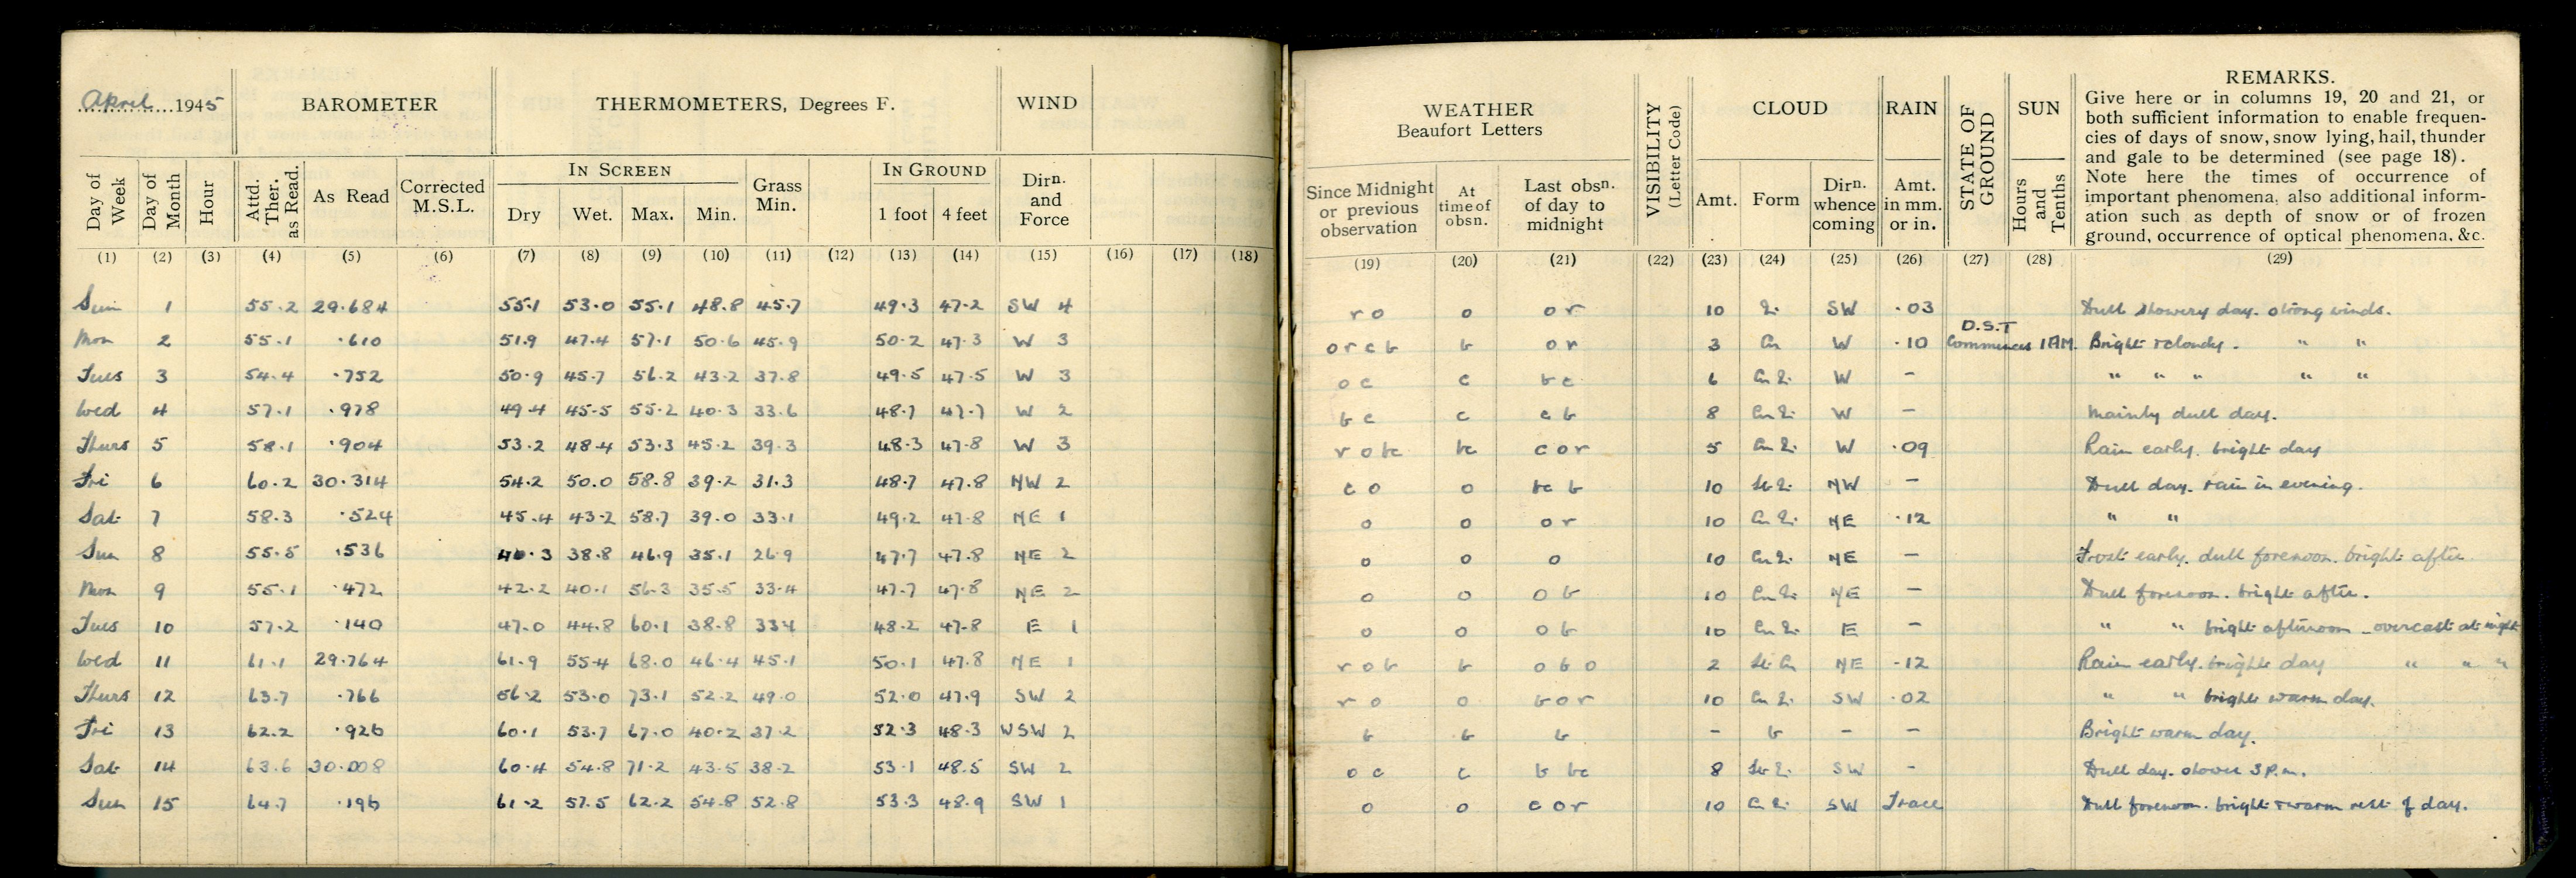 April 1945 BAROMETER THERMOMETERS, Degrees F. WIND
Day of Week Day of Month Hour Attd. Ther. as Read. As Read Corrected M.S.L. IN SCREEN Dry Wet. Max. Min. Grass Min. IN GROUND 1 foot 4 feet Dirn. and Force
(1) (2) (3) (4) (5) (6) (7) (8) (9) (10) (11) (12) (13) (14) (15) (16) (17) (18)
Sun 1 55.2 29.684 55.1 53.0 55.1 48.8 45.7 49.3 47.2 SW 4
Mon 2 55.1 .610 51.9 47.4 57.1 50.6 45.9 50.2 47.3 W 3
Tues 3 54.4 .752 50.9 45.7 56.2 43.2 37.8 49.5 47.5 W 3
Wed 4 57.1 .978 49.4 45.5 55.2 40.3 33.6 48.7 47.7 W 2
Thurs 5 58.1 .904 53.2 48.4 53.3 45.2 39.3 48.3 47.8 W 3
Fri 6 60.2 30.314 54.2 50.0 58.8 39.2 31.3 48.7 47.8 NW 2
Sat 7 58.3 .524 45.4 43.2 58.7 39.0 33.1 49.2 47.8 NE 1
Sun 8 55.5 .536 40.3 38.8 46.9 35.1 26.9 47.7 47.8 NE 2
Mon 9 55.1 .472 42.2 40.1 56.3 35.5 33.4 47.7 47.8 NE 2
Tues 10 57.2 .140 47.0 44.8 60.1 38.8 33.4 48.2 47.8 E 1
Wed 11 61.1 29.764 61.9 55.4 68.0 46.4 45.1 50.1 47.8 NE 1
Thurs 12 63.7 .766 56.2 53.0 73.1 52.2 49.0 52.0 47.9 SW 2
Fri 13 62.2 .926 60.1 53.7 67.0 40.2 37.2 52.3 48.3 WSW 2
Sat 14 63.6 30.008 60.4 54.8 71.2 43.5 38.2 53.1 48.5 SW 2
Sun 15 64.7 .196 61.2 57.5 62.2 54.8 52.8 53.3 48.9 SW 1
WEATHER Beaufort Letters VISIBILITY (Letter Code) CLOUD RAIN STATE OF GROUND SUN REMARKS.
Give here or in columns 19, 20 and 21, or
both sufficient information to enable frequen-
cies of days of snow, snow lying, hail, thunder
and gale to be determined (see page 18).
Note here the times of occurrence of
important phenomena, also additional inform-
ation such as depth of snow or of frozen
ground, occurrence of optical phenomena, &c.
Since Midnight or previous observation At time of obsn. Last obsn. of day to midnight Amt. Form Dirn. whence coming Amt. in mm. or in. Hours and Tenths
(19) (20) (21) (22) (23) (24) (25) (26) (27) (28) (29)
r o o o r 10 SW .03 Dull showery day. strong winds.
D.S.T
o r c b b o r 3 Cu W .10 Commences 1 AM. Bright & cloudy. " "
o c c b c 6 Cu W - " " " " "
b c c c b 8 Cu W - Mainly dull day.
r o bc bc c o r 5 Cu W .09 Rain early. bright day
c o o bc b 10 NW - Dull day. rain in evening.
o o o r 10 Cu NE .12 " "
o o o 10 Cu NE - Frost early. dull forenoon. bright after.
o o o b 10 Cu NE - Dull forenoon. bright after.
o o o b 10 Cu E - " " bright afternoon - overcast at night
r o b b o b o 2 Cu NE .12 Rain early. bright day " " "
r o o b o r 10 Cu SW .02 " " bright warm day.
b b b - b - - Bright warm day.
o c c b bc 8 SW - Dull day. shower 3 P.m.
o o c o r 10 SW Trace Dull forenoon. bright & warm rest of day.